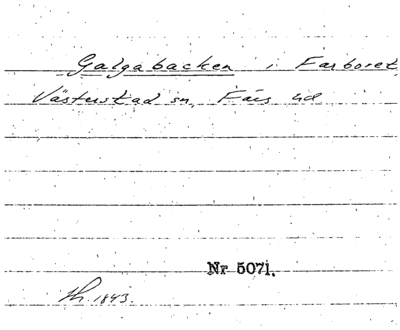 Galgabacken i Farboret,
Västerstad sn, Färs hd
Nr 5071.
Th. 1843.